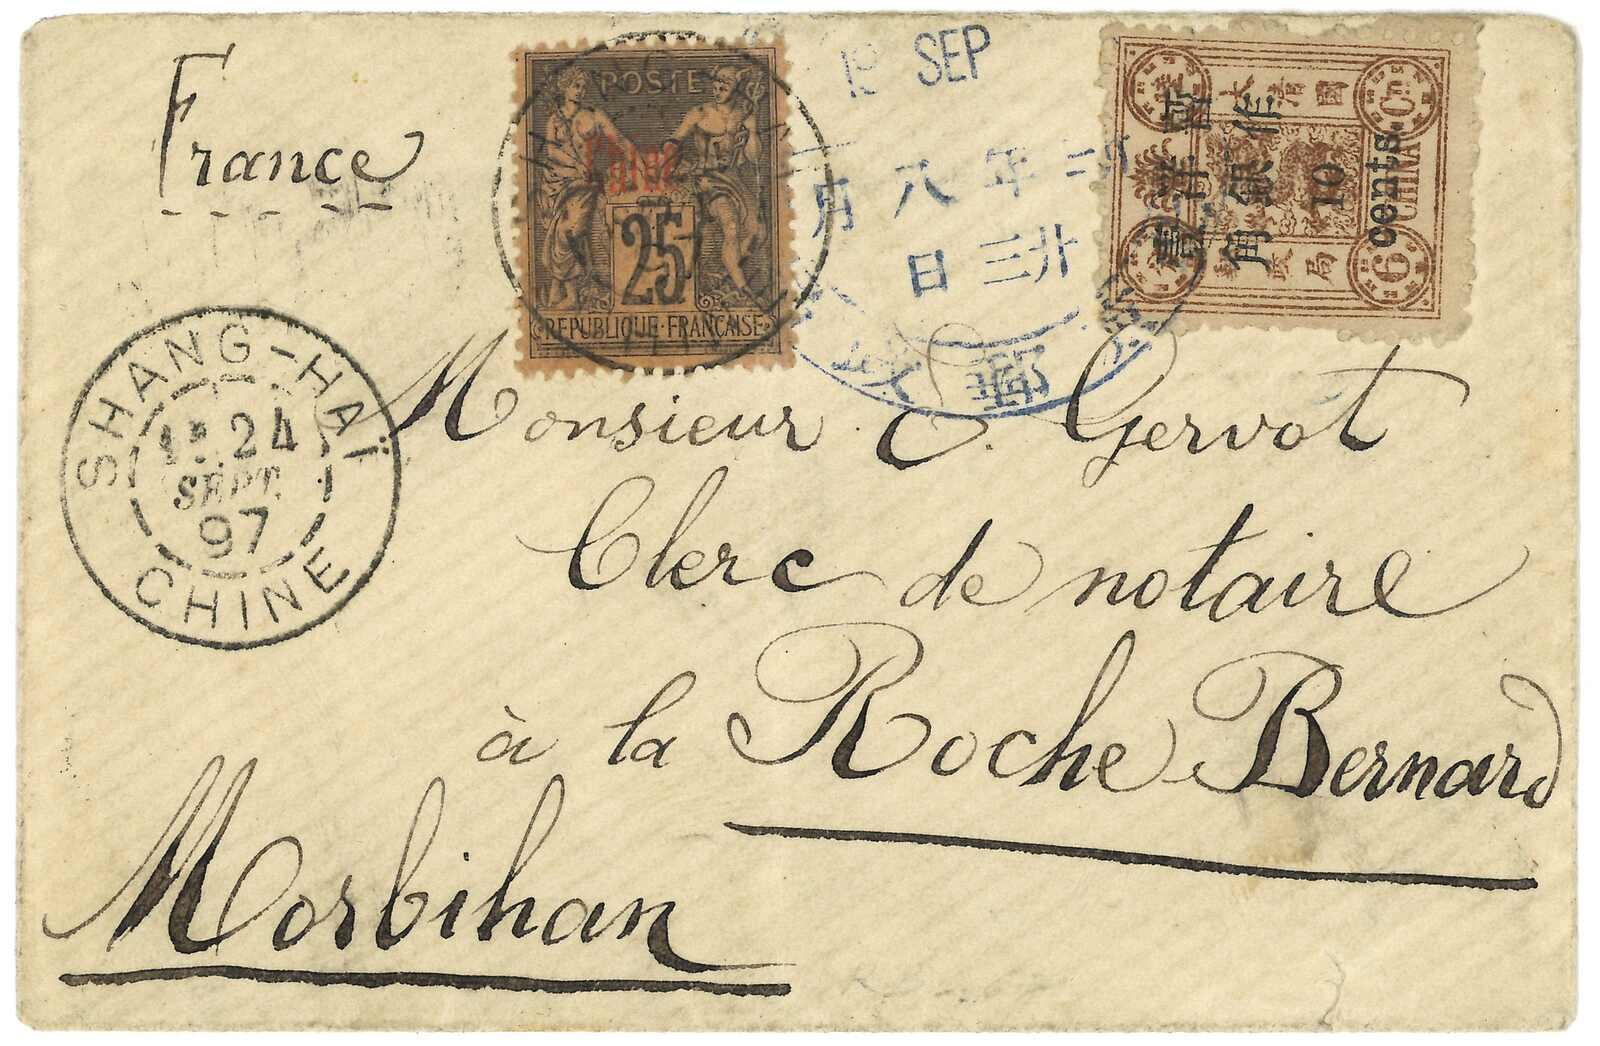 France
POSTE
Chine
25
REPUBLIQUE·FRANÇAISE
19 SEP
年八月
廿三日
大清國
郵政局
CHINA
6 Cn
暫作
洋銀
壹角
10
cents.
SHANG-HAÏ
1E 24
SEPT.
97
CHINE
Monsieur C. Gervot
Clerc de notaire
à la Roche Bernard
Morbihan